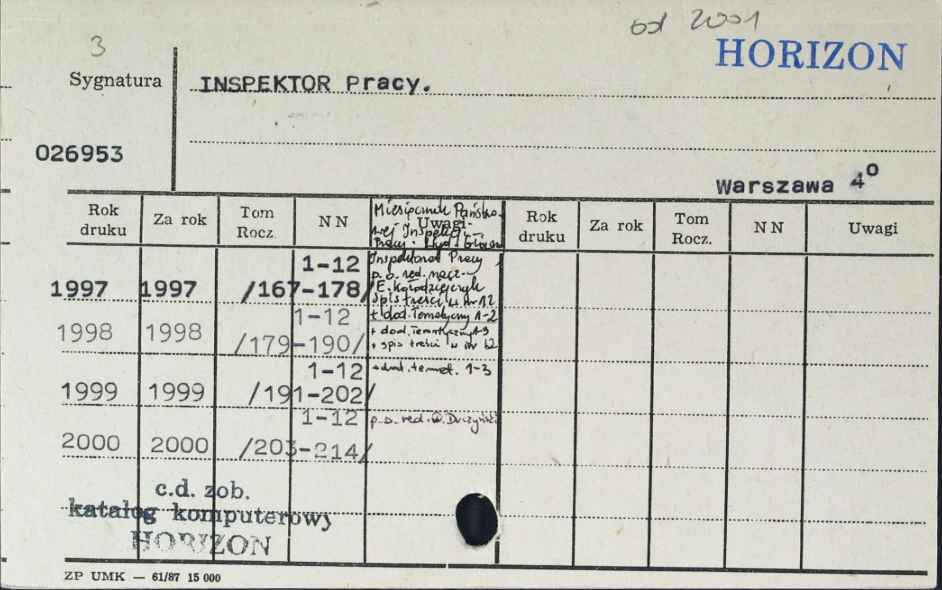 od 2001
HORIZON
3
Sygnatura
INSPEKTOR Pracy.
026953
Warszawa 4º
Rok druku Za rok Tom Rocz. N N Uwagi Rok druku Za rok Tom Rocz. N N Uwagi
Miesięcznik Państwo-
wej Inspekcji
Pracy. Wyd. Główny
Inspektorat Pracy
p.o. red. nacz.
E. Kołodziejczyk
Spis treści w nr 12
+ dod. Tematyczny 1-2
1997 1997 1-12 /167-178/
1998 1998 1-12 /179-190/ + dod. Tematyczny 1-3
+ spis treści w nr 12
1999 1999 1-12 /191-202/ + dod. temat. 1-3
2000 2000 1-12 /203-214/ p.o. red. W.
c.d. zob.
katalog komputerowy
HORIZON
ZP UMK — 61/87 15 000